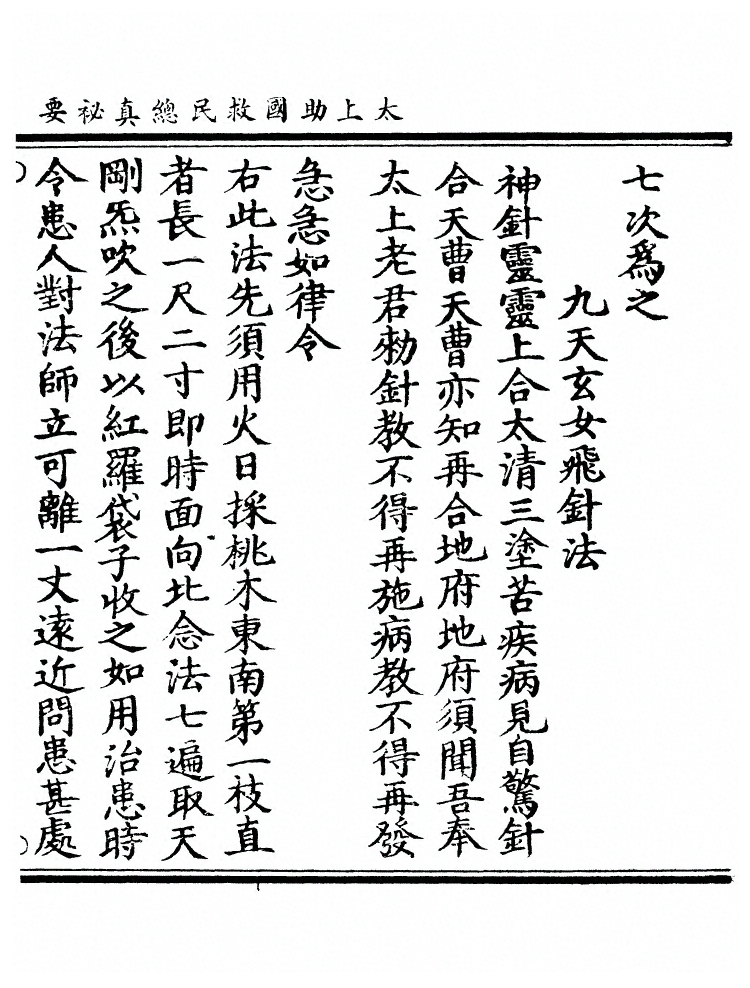 太上助國救民總真祕要
七次為之
九天玄女飛針法
神針靈靈上合太清三塗苦疾病見自驚針
合天曹天曹亦知再合地府地府須聞吾奉
太上老君勑針教不得再施病教不得再發
急急如律令
右此法先須用火日採桃木東南第一枝直
者長一尺二寸即時面向北念法七遍取天
剛炁吹之後以紅羅袋子收之如用治患時
令患人對法師立可離一丈遠近問患甚處